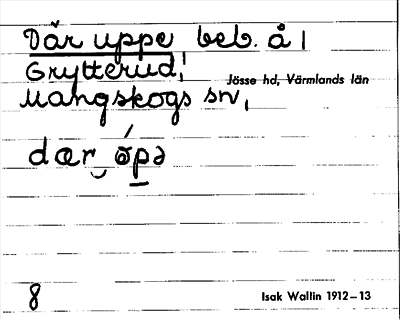 Där uppe beb. å
Grytterud,
Jösse hd, Värmlands län
Mangskogs sn,
dær ópə
8
Isak Wallin 1912–13